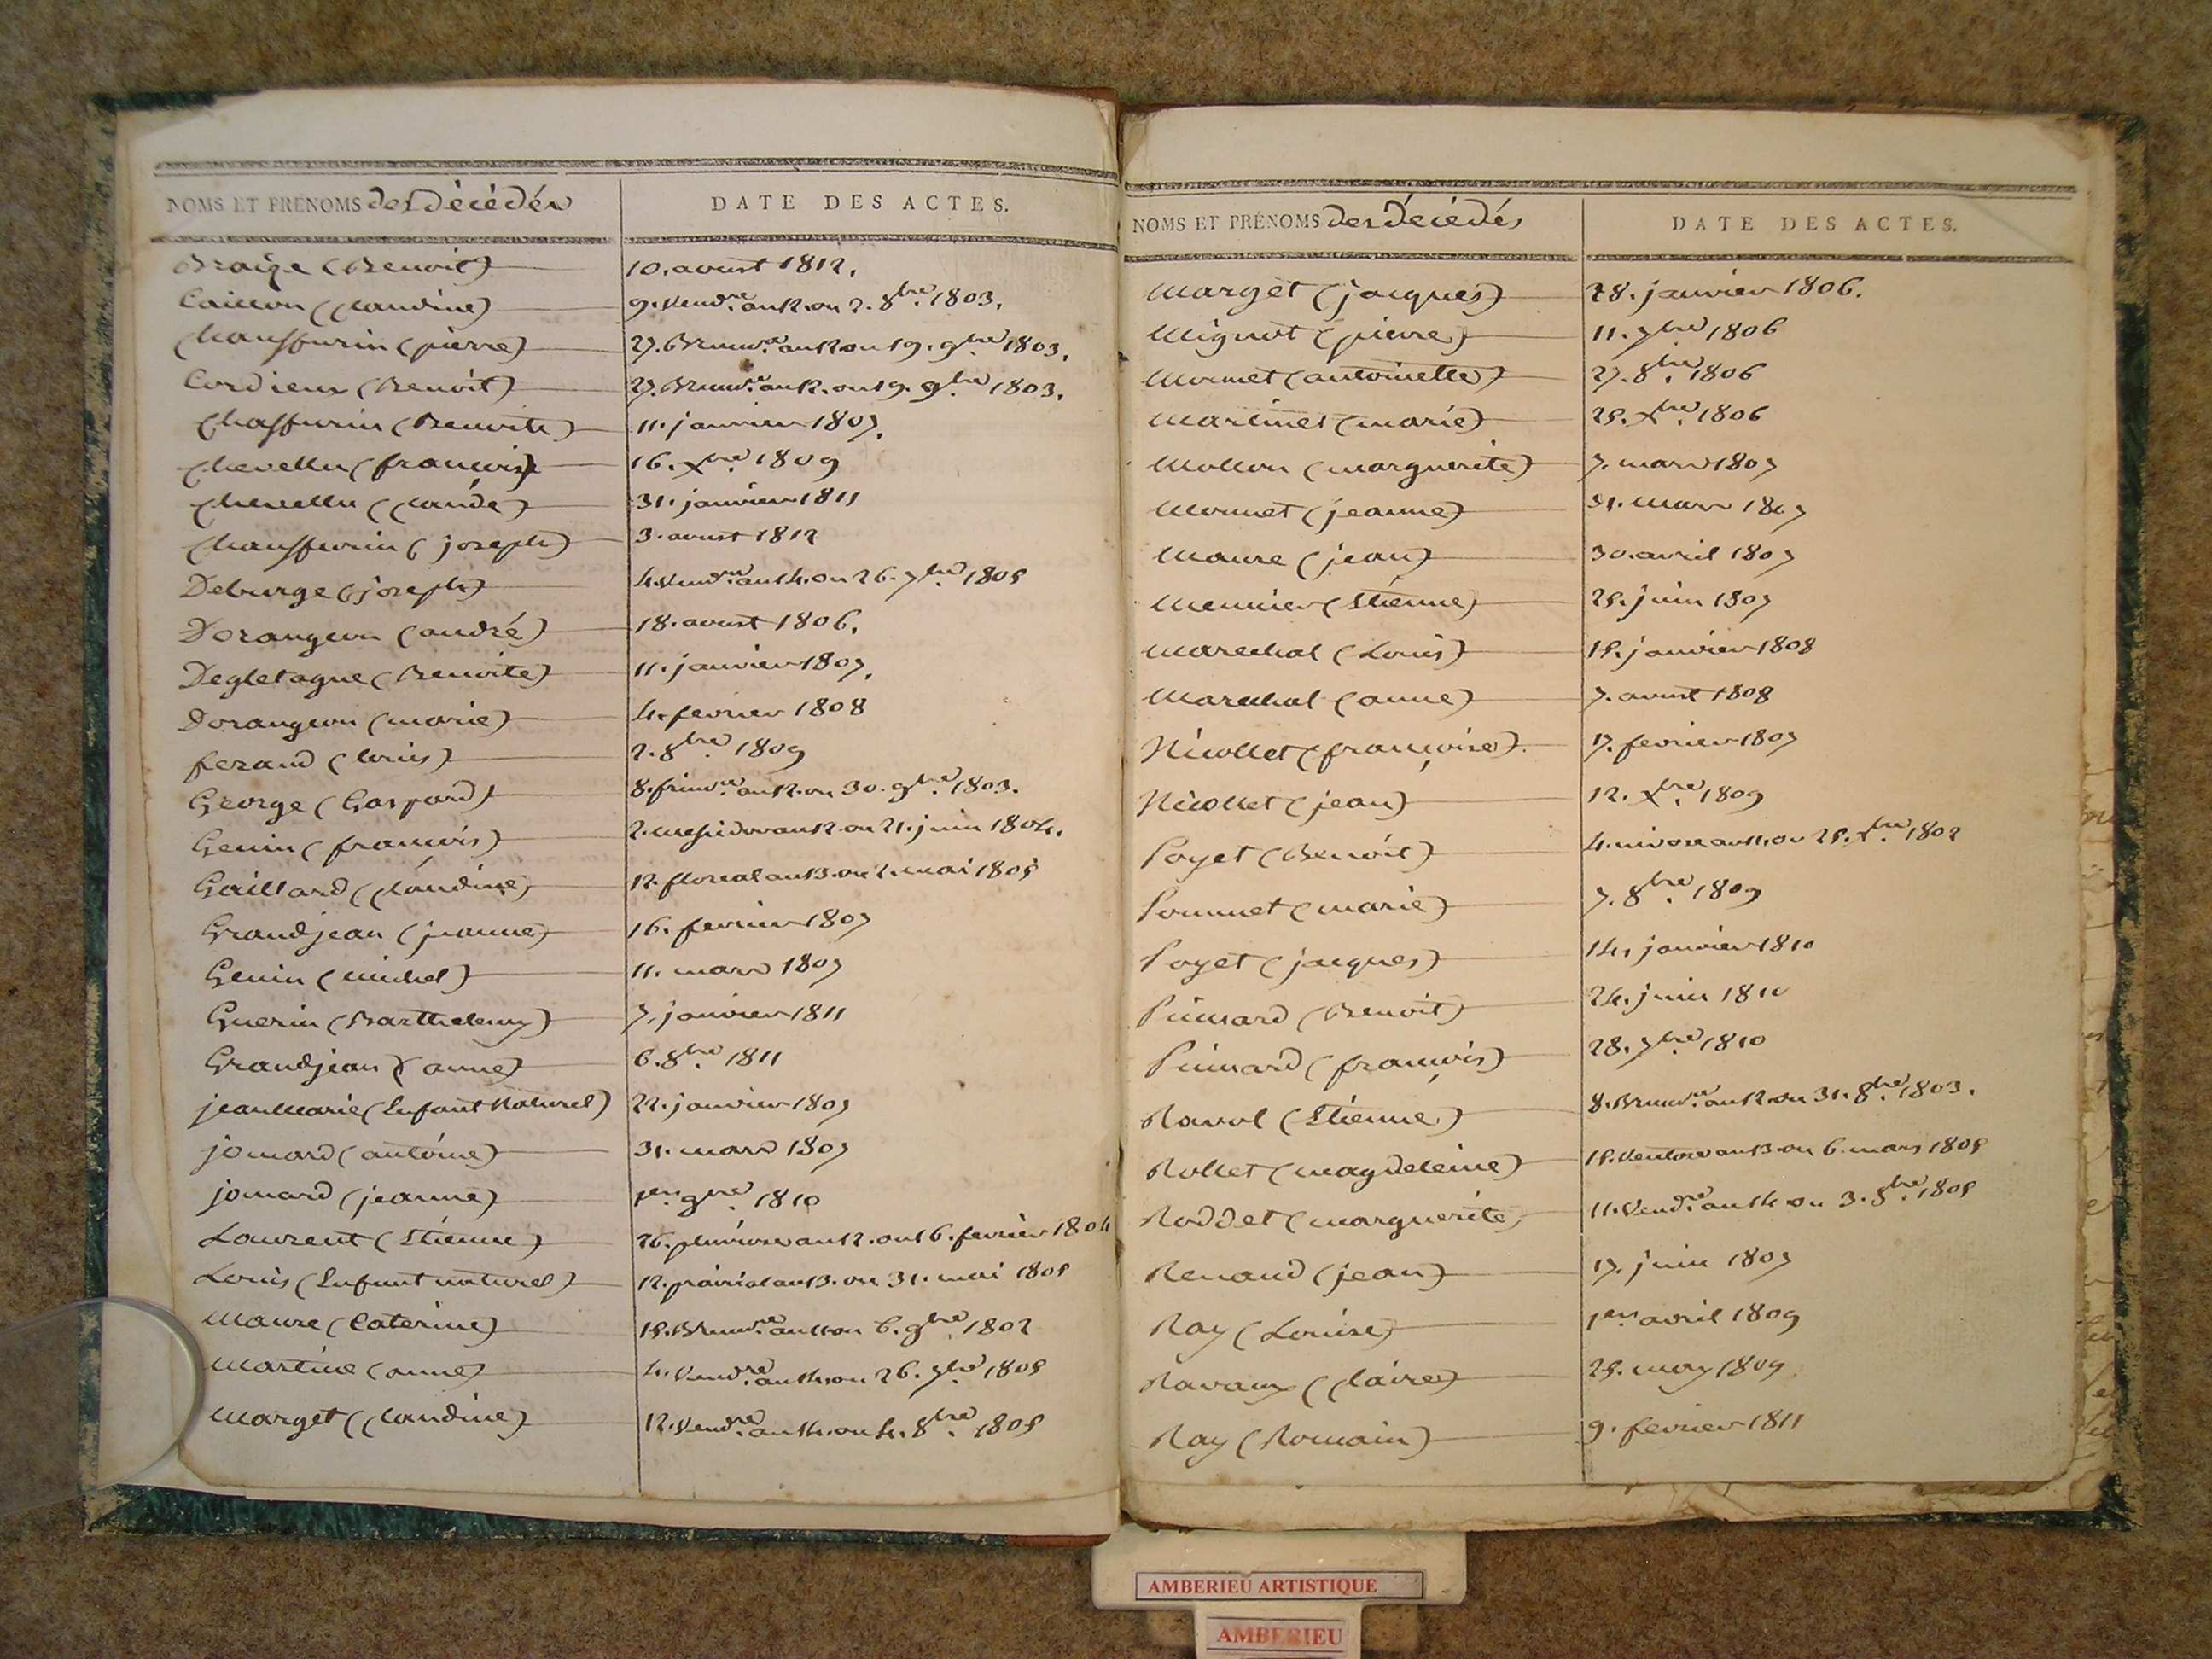 NOMS ET PRENOMS des décédés DATE DES ACTES.
Braize (Benoit) 10. aoust 1812.
Caillon (Claudine) 9. Vend.re an 12. ou 2. 8bre. 1803.
Chanffurin (pierre) 27. Brum.re an 12 ou 19. 9bre 1803.
Cordieux (Benoit) 27. Brum.re an 12. ou 19. 9bre. 1803.
Chaffurin (Benoite) 11. janvier 1807.
Chevellu (francois) 16. Xbre. 1809
Chevellu (Claude) 31. janvier 1811
Chanffurin (joseph) 3. aoust 1812
Deburge (joseph) 4. Vend.re an 14. ou 26. 7bre. 1805
Dorangeon (andré) 18. aoust 1806.
Degletagne (Benoite) 11. janvier 1807.
Dorangeon (marie) 4. fevrier 1808
feraud (louis) 2. 8bre. 1809
George (Gaspard) 8. frim.re an 12. ou 30. 9bre. 1803.
Genin (francois) 2. messidor an 12 ou 21. juin 1804.
Gaillard (Claudine) 12. floreal an 13. ou 2. mai 1805
Grandjean (jeanne) 16. fevrier 1807
Genin (michel) 11. mars 1807
Guerin (Barthelemy) 7. janvier 1811
Grandjean (anne) 6. 8bre. 1811
jean Marie (Enfant Naturel) 22. janvier 1807
jomard (antoine) 31. mars 1807
jomard (jeanne) 1er. 9bre. 1810
Laurent (Etienne) 26. pluviose an 12. ou 16. fevrier 1804
Louis (Enfant naturel) 12. prairial an 13. ou 31. mai 1805
Maure (Caterine) 15. Brum.re an 11 ou 6. 9bre. 1802
Martine (anne) 4. Vend.re an 14. ou 26. 7bre. 1805
Marget (Claudine) 12. Vend.re an 14. ou 4. 8bre. 1805
NOMS ET PRÉNOMS des décédés DATE DES ACTES.
Marget (jacques) 28. janvier 1806.
Mignot (pierre) 11. 7bre. 1806
Mormet (antoinette) 27. 8bre. 1806
Martinet (marie) 25. Xbre. 1806
Mollon (marguerite) 7. mars 1807
Mormet (jeanne) 31. Mars 1807
Maure (jean) 30. avril 1807
Meunier (Etienne) 25. juin 1807
Marechal (Louis) 15. janvier 1808
Marechal (anne) 7. aoust 1808
Nicollet (françoise) 17. fevrier 1807
Nicollet (jean) 12. Xbre. 1809
Poyet (Benoit) 4. nivose an 11. ou 25. Xbre. 1802
Pommet (marie) 7. 8bre. 1809
Poyet (jacques) 14. janvier 1810
Puinard (Benoit) 24. juin 1810
Puinard (francois) 28. 7bre. 1810
Ravol (Etienne) 8. Brum.re an 12. ou 31. 8bre. 1803.
Rollet (magdeleine) 15. Ventose an 13. ou 6. mars 1805
Roddet (marguerite) 11. Vend.re an 14 ou 3. 8bre. 1805
Renaud (jean) 17. juin 1807
Ray (Louise) 1er avril 1809
Ravaux (Claire) 25. may 1809
Ray (Romain) 9. fevrier 1811
AMBERIEU ARTISTIQUE
AMBERIEU